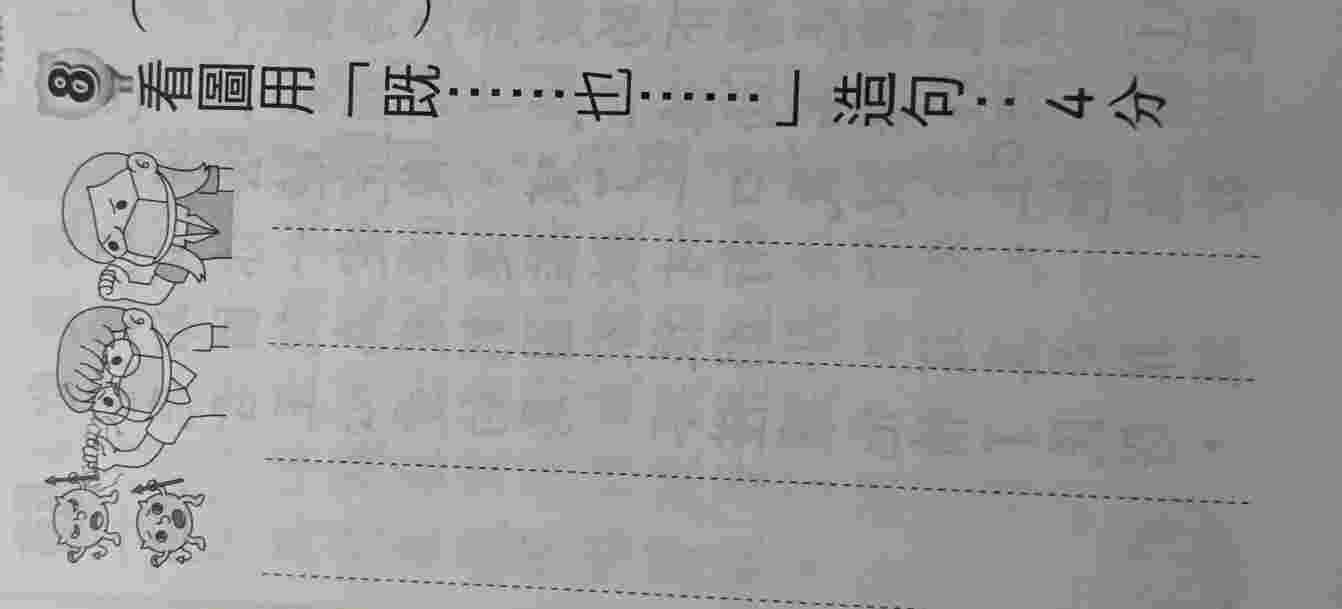 (　　)
8 看圖用「既……也……」造句：4分